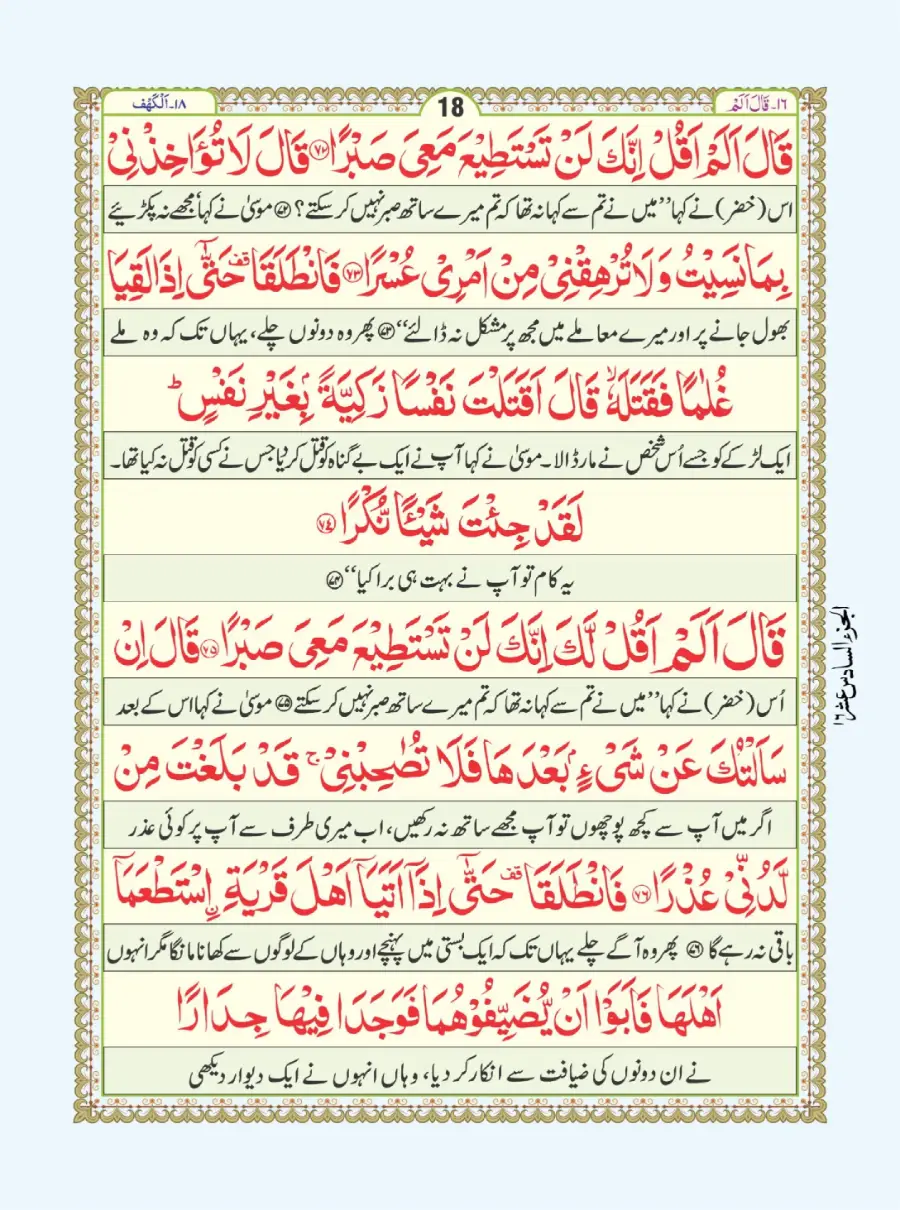 ١٦۔ قَالَ اَلَمْ
18
١٨۔ اَلْكَهْف
قَالَ اَلَمْ اَقُلْ اِنَّكَ لَنْ تَسْتَطِيْعَ مَعِىَ صَبْرًا ﴿٧٢﴾ قَالَ لَا تُؤَاخِذْنِىْ
اس (خضر) نے کہا ’’میں نے تم سے کہا نہ تھا کہ تم میرے ساتھ صبر نہیں کر سکتے؟ ﴿۷۲﴾ موسیٰ نے کہا ’مجھے نہ پکڑیئے
بِمَا نَسِيْتُ وَلَا تُرْهِقْنِىْ مِنْ اَمْرِىْ عُسْرًا ﴿٧٣﴾ فَانْطَلَقَا ۥقف حَتّٰٓى اِذَا لَقِيَا
بھول جانے پر اور میرے معاملے میں مجھ پر مشکل نہ ڈالئے‘‘ ﴿۷۳﴾ پھر وہ دونوں چلے، یہاں تک کہ وہ ملے
غُلٰمًا فَقَتَلَهٗ ۙ قَالَ اَقَتَلْتَ نَفْسًا زَكِيَّةًۢ بِغَيْرِ نَفْسٍ ؕ
ایک لڑکے کو جسے اُس شخص نے مار ڈالا۔ موسیٰ نے کہا آپ نے ایک بے گناہ کو قتل کر دیا جس نے کسی کو قتل نہ کیا تھا۔
لَقَدْ جِئْتَ شَيْـًٔا نُّكْرًا ﴿٧٤﴾
یہ کام تو آپ نے بہت ہی برا کیا‘‘ ﴿۷۴﴾
قَالَ اَلَمْ اَقُلْ لَّكَ اِنَّكَ لَنْ تَسْتَطِيْعَ مَعِىَ صَبْرًا ﴿٧٥﴾ قَالَ اِنْ
اُس (خضر) نے کہا ’’میں نے تم سے کہا نہ تھا کہ تم میرے ساتھ صبر نہیں کر سکتے ﴿۷۵﴾ موسیٰ نے کہا اس کے بعد
سَاَلْتُكَ عَنْ شَىْءٍۢ بَعْدَهَا فَلَا تُصٰحِبْنِىْ ۚ قَدْ بَلَغْتَ مِنْ
اگر میں آپ سے کچھ پوچھوں تو آپ مجھے ساتھ نہ رکھیں، اب میری طرف سے آپ پر کوئی عذر
لَّدُنِّىْ عُذْرًا ﴿٧٦﴾ فَانْطَلَقَا ۥقف حَتّٰٓى اِذَاۤ اَتَيَاۤ اَهْلَ قَرْيَةِ ۨاسْتَطْعَمَاۤ
باقی نہ رہے گا ﴿۷۶﴾ پھر وہ آگے چلے یہاں تک کہ ایک بستی میں پہنچے اور وہاں کے لوگوں سے کھانا مانگا مگر انہوں
اَهْلَهَا فَاَبَوْا اَنْ يُّضَيِّفُوْهُمَا فَوَجَدَا فِيْهَا جِدَارًا
نے ان دونوں کی ضیافت سے انکار کر دیا، وہاں انہوں نے ایک دیوار دیکھی
الجزء السادس عشر ١٦